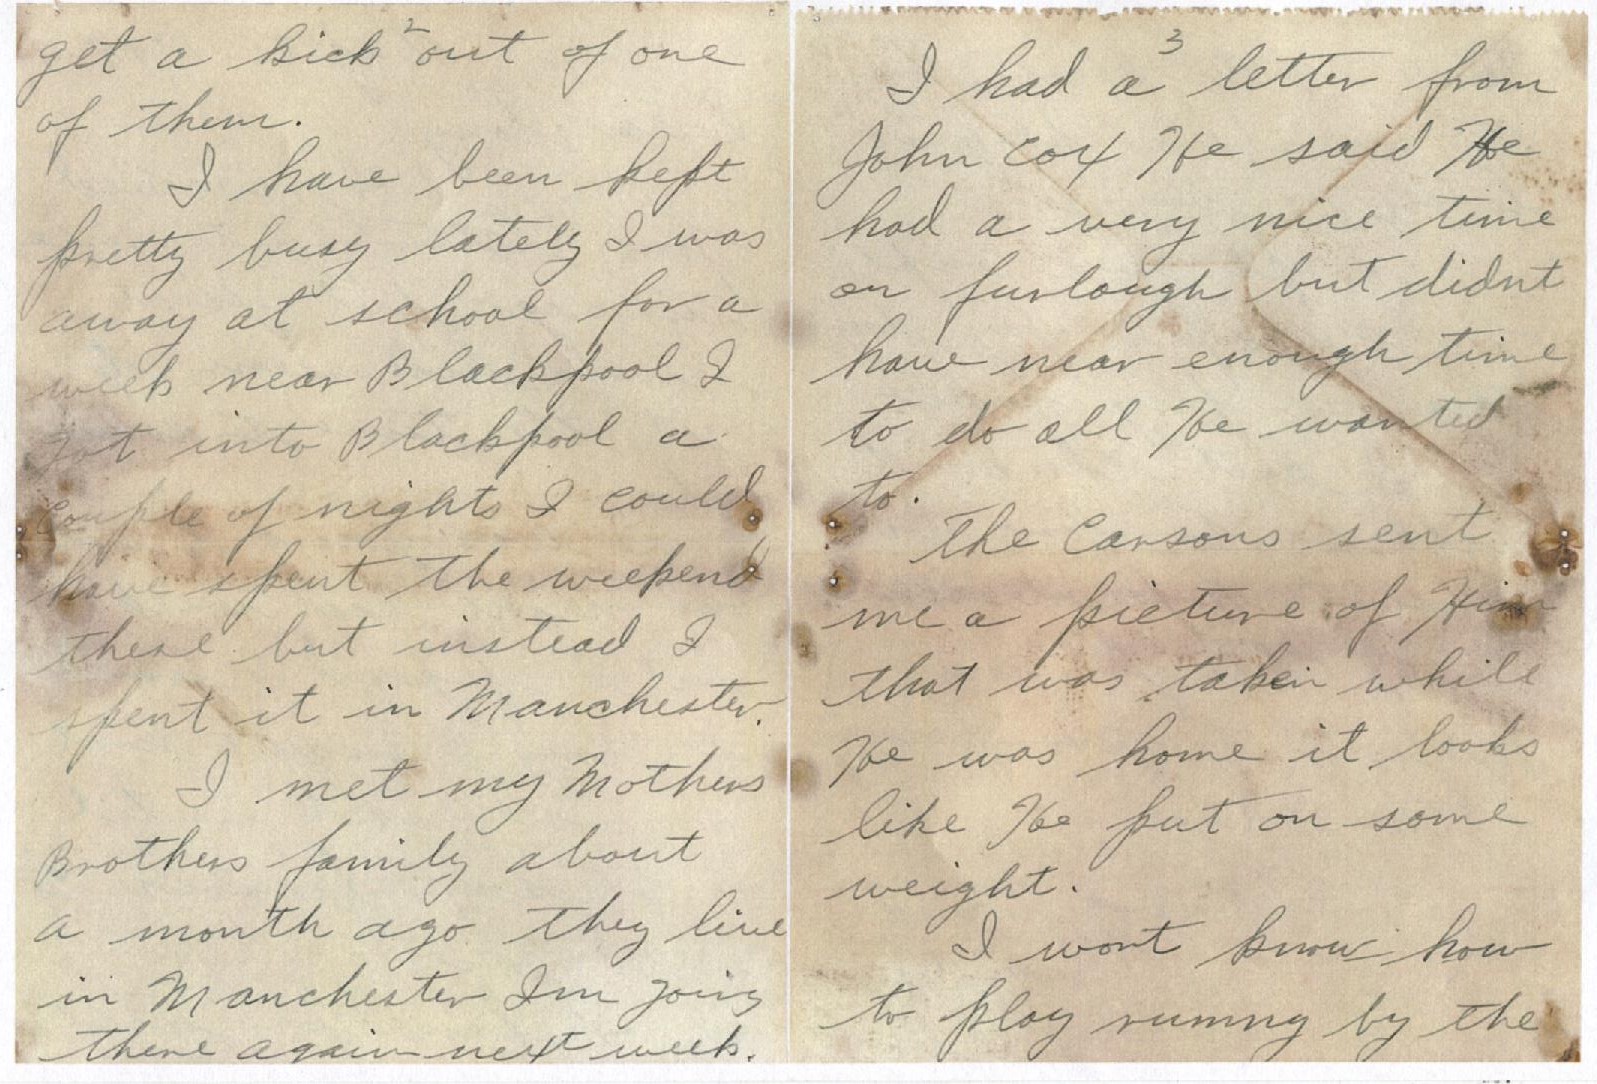 2
get a kick out of one
of them.
I have been kept
pretty busy lately I was
away at school for a
week near Blackpool I
got into Blackpool a
couple of nights I could
have spent the weekend
there but instead I
spent it in Manchester.
I met my Mothers
Brothers family about
a month ago they live
in Manchester Im going
there again next week.
3
I had a letter from
John Cox He said He
had a very nice time
on furlough but didnt
have near enough time
to do all He wanted
to.
The Carsons sent
me a picture of Him
that was taken while
He was home it looks
like He put on some
weight.
I wont know how
to play rummy by the